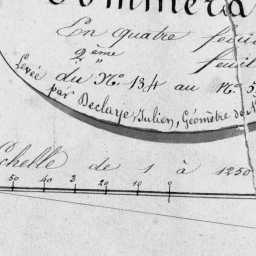 Sommera
En quatre feui
2ème feuil
du N° 134 au N° 5
Levée par Declaye, Julien, Géomètre de
Echelle de 1 à 1250
50 40 3 20 10 0